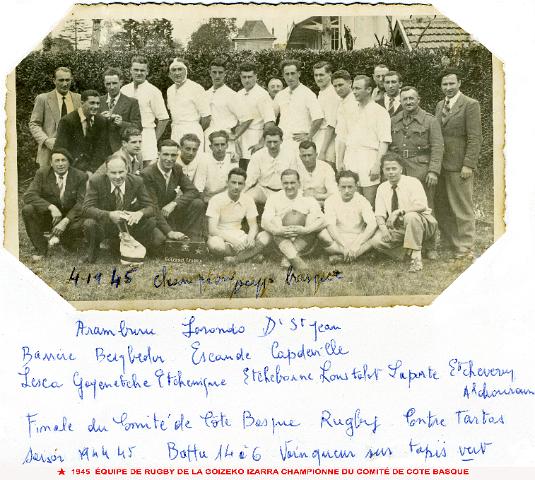 4 1945 Champion pays basque
Aramburu Lorondo D' St Jean
Barrère Beigbeder Escande Capdeville
Lesca Goyenetche Etchenique Etchebarne Loustalot Laporte Etcheverry
Finale du Comité de Côte Basque Rugby Contre Tartas
Saison 1944 45. Battu 14 à 6 Vainqueur sur tapis vert
★ 1945 ÉQUIPE DE RUGBY DE LA GOIZEKO IZARRA CHAMPIONNE DU COMITÉ DE COTE BASQUE